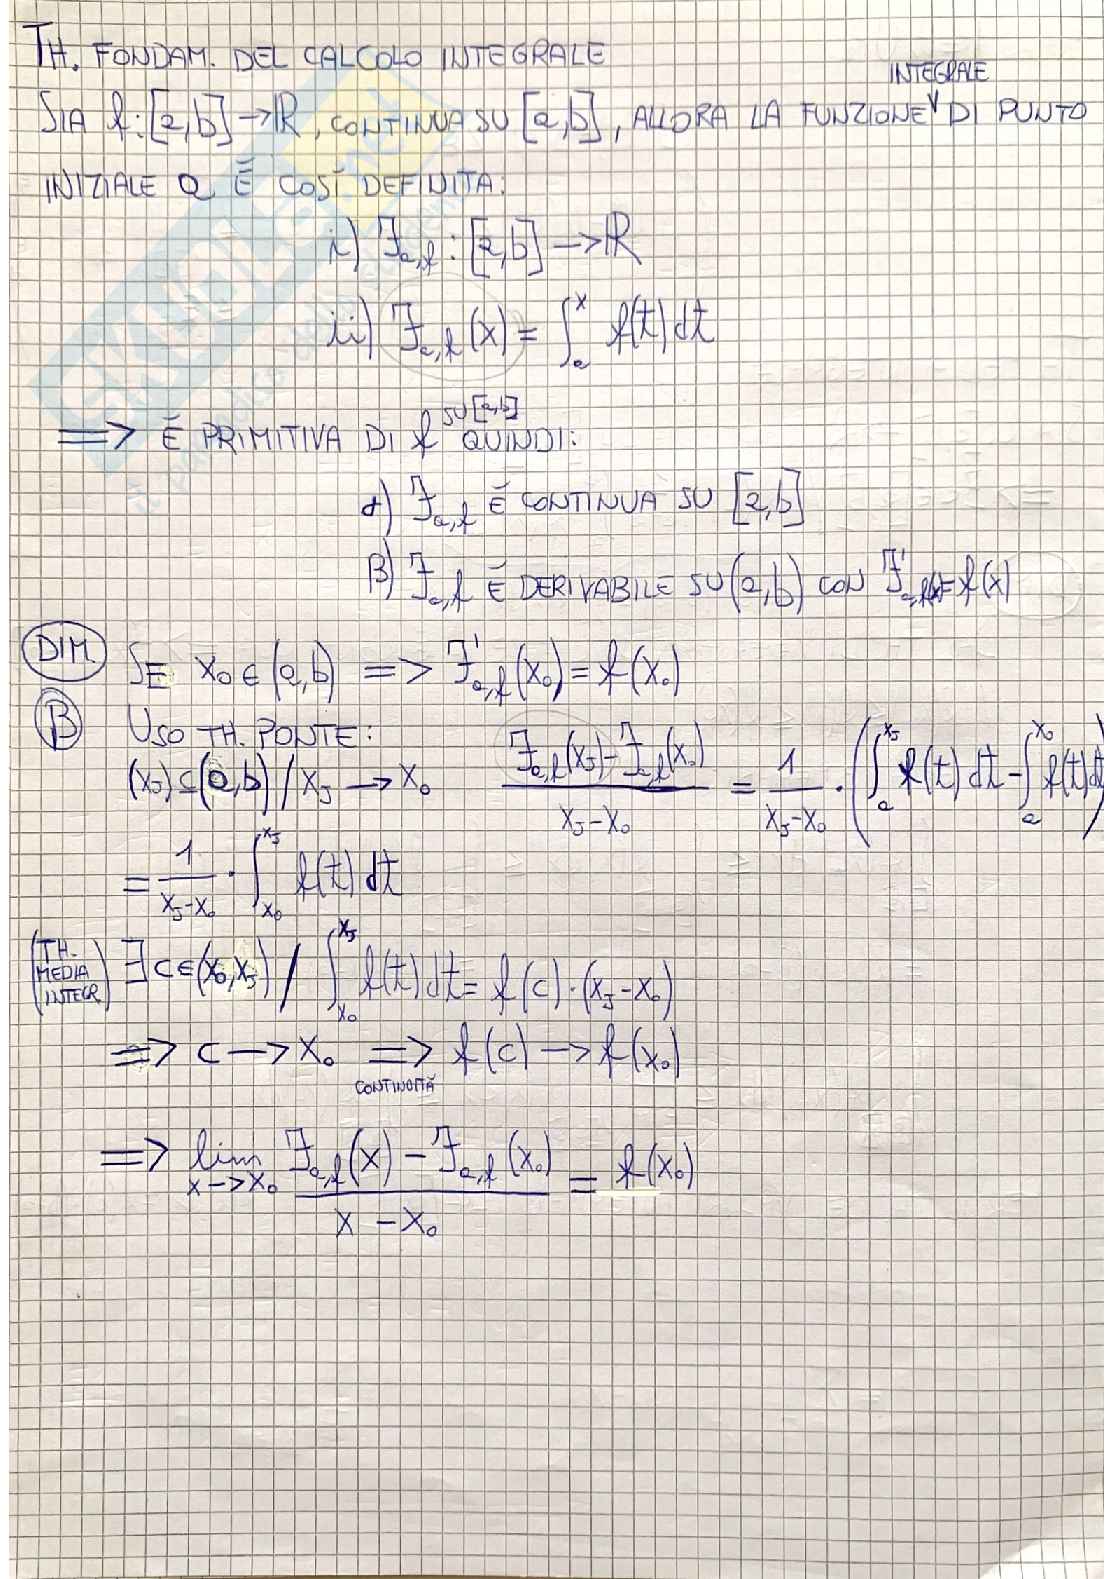 TH. FONDAM. DEL CALCOLO INTEGRALE
INTEGRALE
SIA f: [a,b] → R, CONTINUA SU [a,b], ALLORA LA FUNZIONE ∨ DI PUNTO
INIZIALE a È COSÌ DEFINITA:
i) F_{a,f} : [a,b] → R
ii) F_{a,f}(x) = ∫_a^x f(t) dt
SU [a,b]
=> È PRIMITIVA DI f QUINDI:
α) F_{a,f} È CONTINUA SU [a,b]
β) F_{a,f} È DERIVABILE SU (a,b) CON F'_{a,f}(x) = f(x)
DIM. SE x₀ ∈ (a,b) => F'_{a,f}(x₀) = f(x₀)
β USO TH. PONTE:
(x_J) ⊆ (a,b) / x_J → x₀ (F_{a,f}(x_J) - F_{a,f}(x₀)) / (x_J - x₀) = 1/(x_J - x₀) · (∫_a^{x_J} f(t) dt - ∫_a^{x₀} f(t) dt)
= 1/(x_J - x₀) · ∫_{x₀}^{x_J} f(t) dt
(TH. MEDIA INTEGR) ∃ c ∈ (x₀, x_J) / ∫_{x₀}^{x_J} f(t) dt = f(c) · (x_J - x₀)
=> c → x₀ => f(c) → f(x₀)
CONTINUITÀ
=> lim_{x → x₀} (F_{a,f}(x) - F_{a,f}(x₀)) / (x - x₀) = f(x₀)